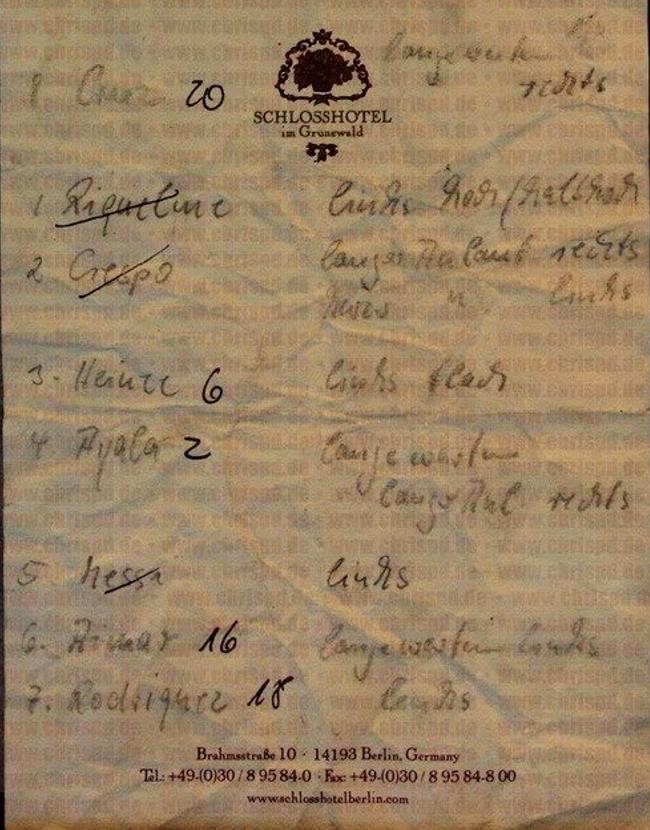 lange warten
8. Cruz 20 rechts
SCHLOSSHOTEL
im Grunewald
1. Riquelme links hoch/halbhoch
2 Crespo langer Anlauf rechts
links
3. Heinze 6 links flach
4 Ayala 2 lange warten
langer Anl rechts
5 Messi links
6. Aimar 16 lange warten links
7. Rodriguez 18 links
Brahmsstraße 10 · 14193 Berlin, Germany
Tel.: +49-(0)30 / 8 95 84-0 · Fax: +49-(0)30 / 8 95 84-8 00
www.schlosshotelberlin.com
www.chrisnd.de